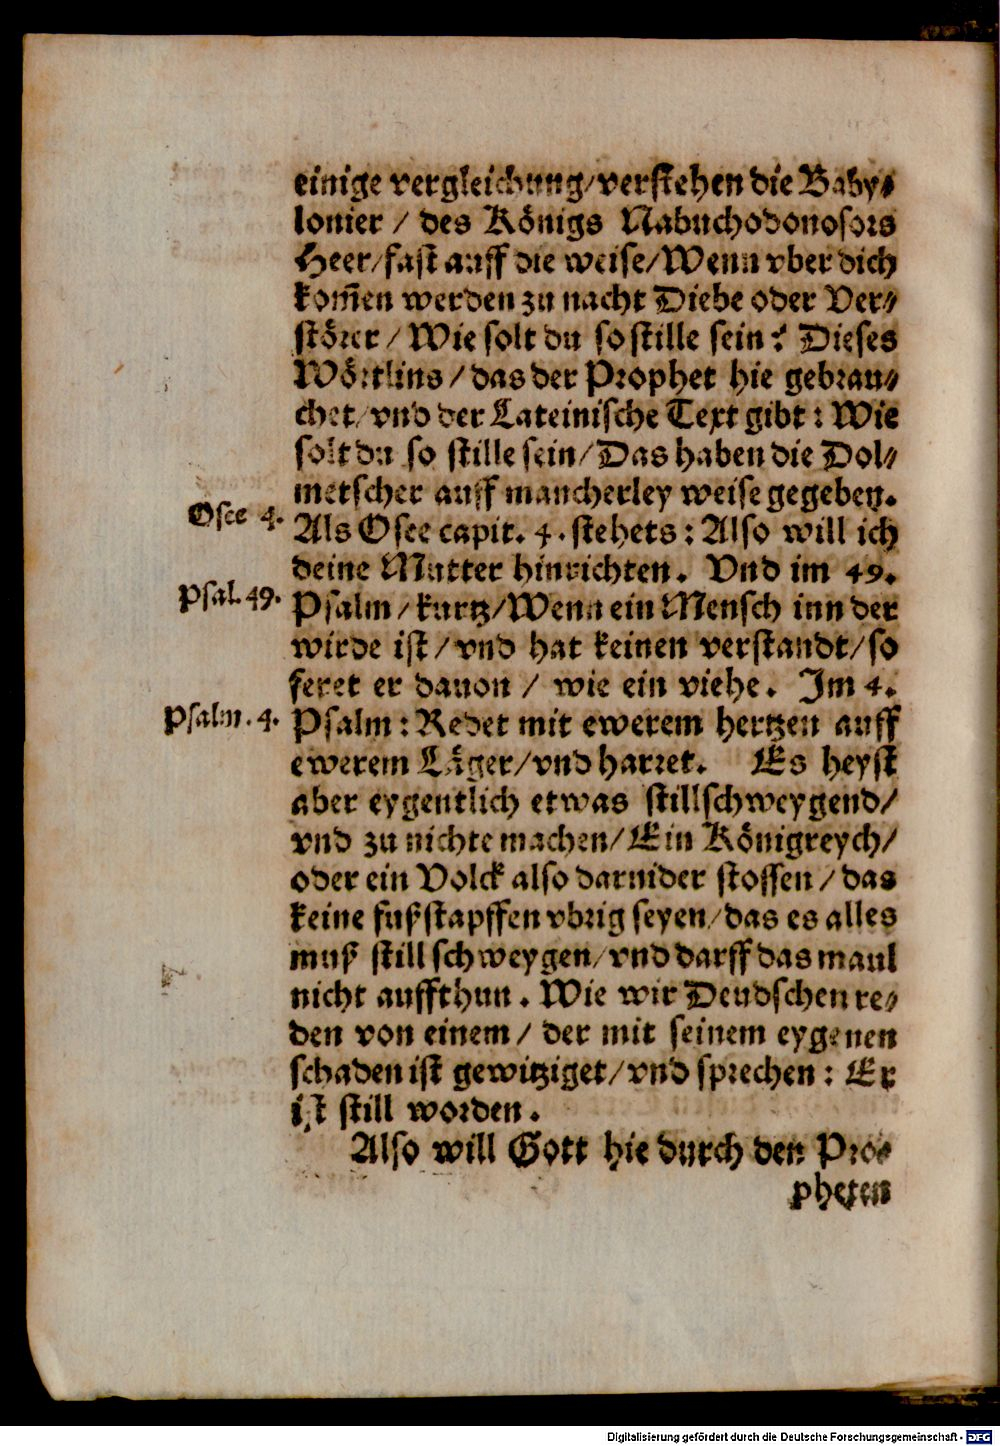 einige vergleichung/verstehen die Baby⸗
lonier / des Königs Nabuchodonosors
Heer/fast auff die weise/Wenn vber dich
kom̃en werden zu nacht Diebe oder Ver⸗
störer / Wie solt du so stille sein? Dieses
Wörtlins / das der Prophet hie gebrau⸗
chet/vnd der Lateinische Text gibt: Wie
solt du so stille sein/Das haben die Dol⸗
metscher auff mancherley weise gegeben.
Osee 4.
Als Osee capit. 4. stehets: Also will ich
deine Mutter hinrichten. Vnd im 49.
Psal. 49.
Psalm / kurtz/Wenn ein Mensch inn der
wirde ist / vnd hat keinen verstandt/so
feret er dauon / wie ein viehe. Im 4.
Psalm. 4.
Psalm: Redet mit ewerem hertzen auff
ewerem Läger/vnd harret. Es heyst
aber eygentlich etwas stillschweygend/
vnd zu nichte machen/Ein Königreych/
oder ein Volck also darnider stossen / das
keine fußstapffen vbrig seyen/das es alles
muß still schweygen/vnd darff das maul
nicht auffthun. Wie wir Deudschen re⸗
den von einem / der mit seinem eygenen
schaden ist gewitziget/vnd sprechen: Er
ist still worden.
Also will Gott hie durch den Pro⸗
pheten
Digitalisierung gefördert durch die Deutsche Forschungsgemeinschaft - DFG